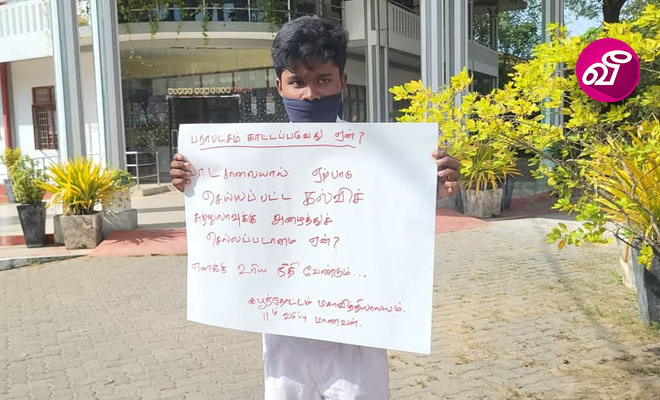 பராபட்சம் காட்டப்படுவது ஏன்?
பாடசாலையால் ஏற்பாடு
செய்யப்பட்ட கல்விச்
சுற்றுலாவுக்கு அழைத்துச்
செல்லப்படாமை ஏன்?
எனக்கு உரிய நீதி வேண்டும்...
பூந்தோட்டம் மகாவித்தியாலயம்.
11ம் வகுப்பு மாணவன்.
வீ